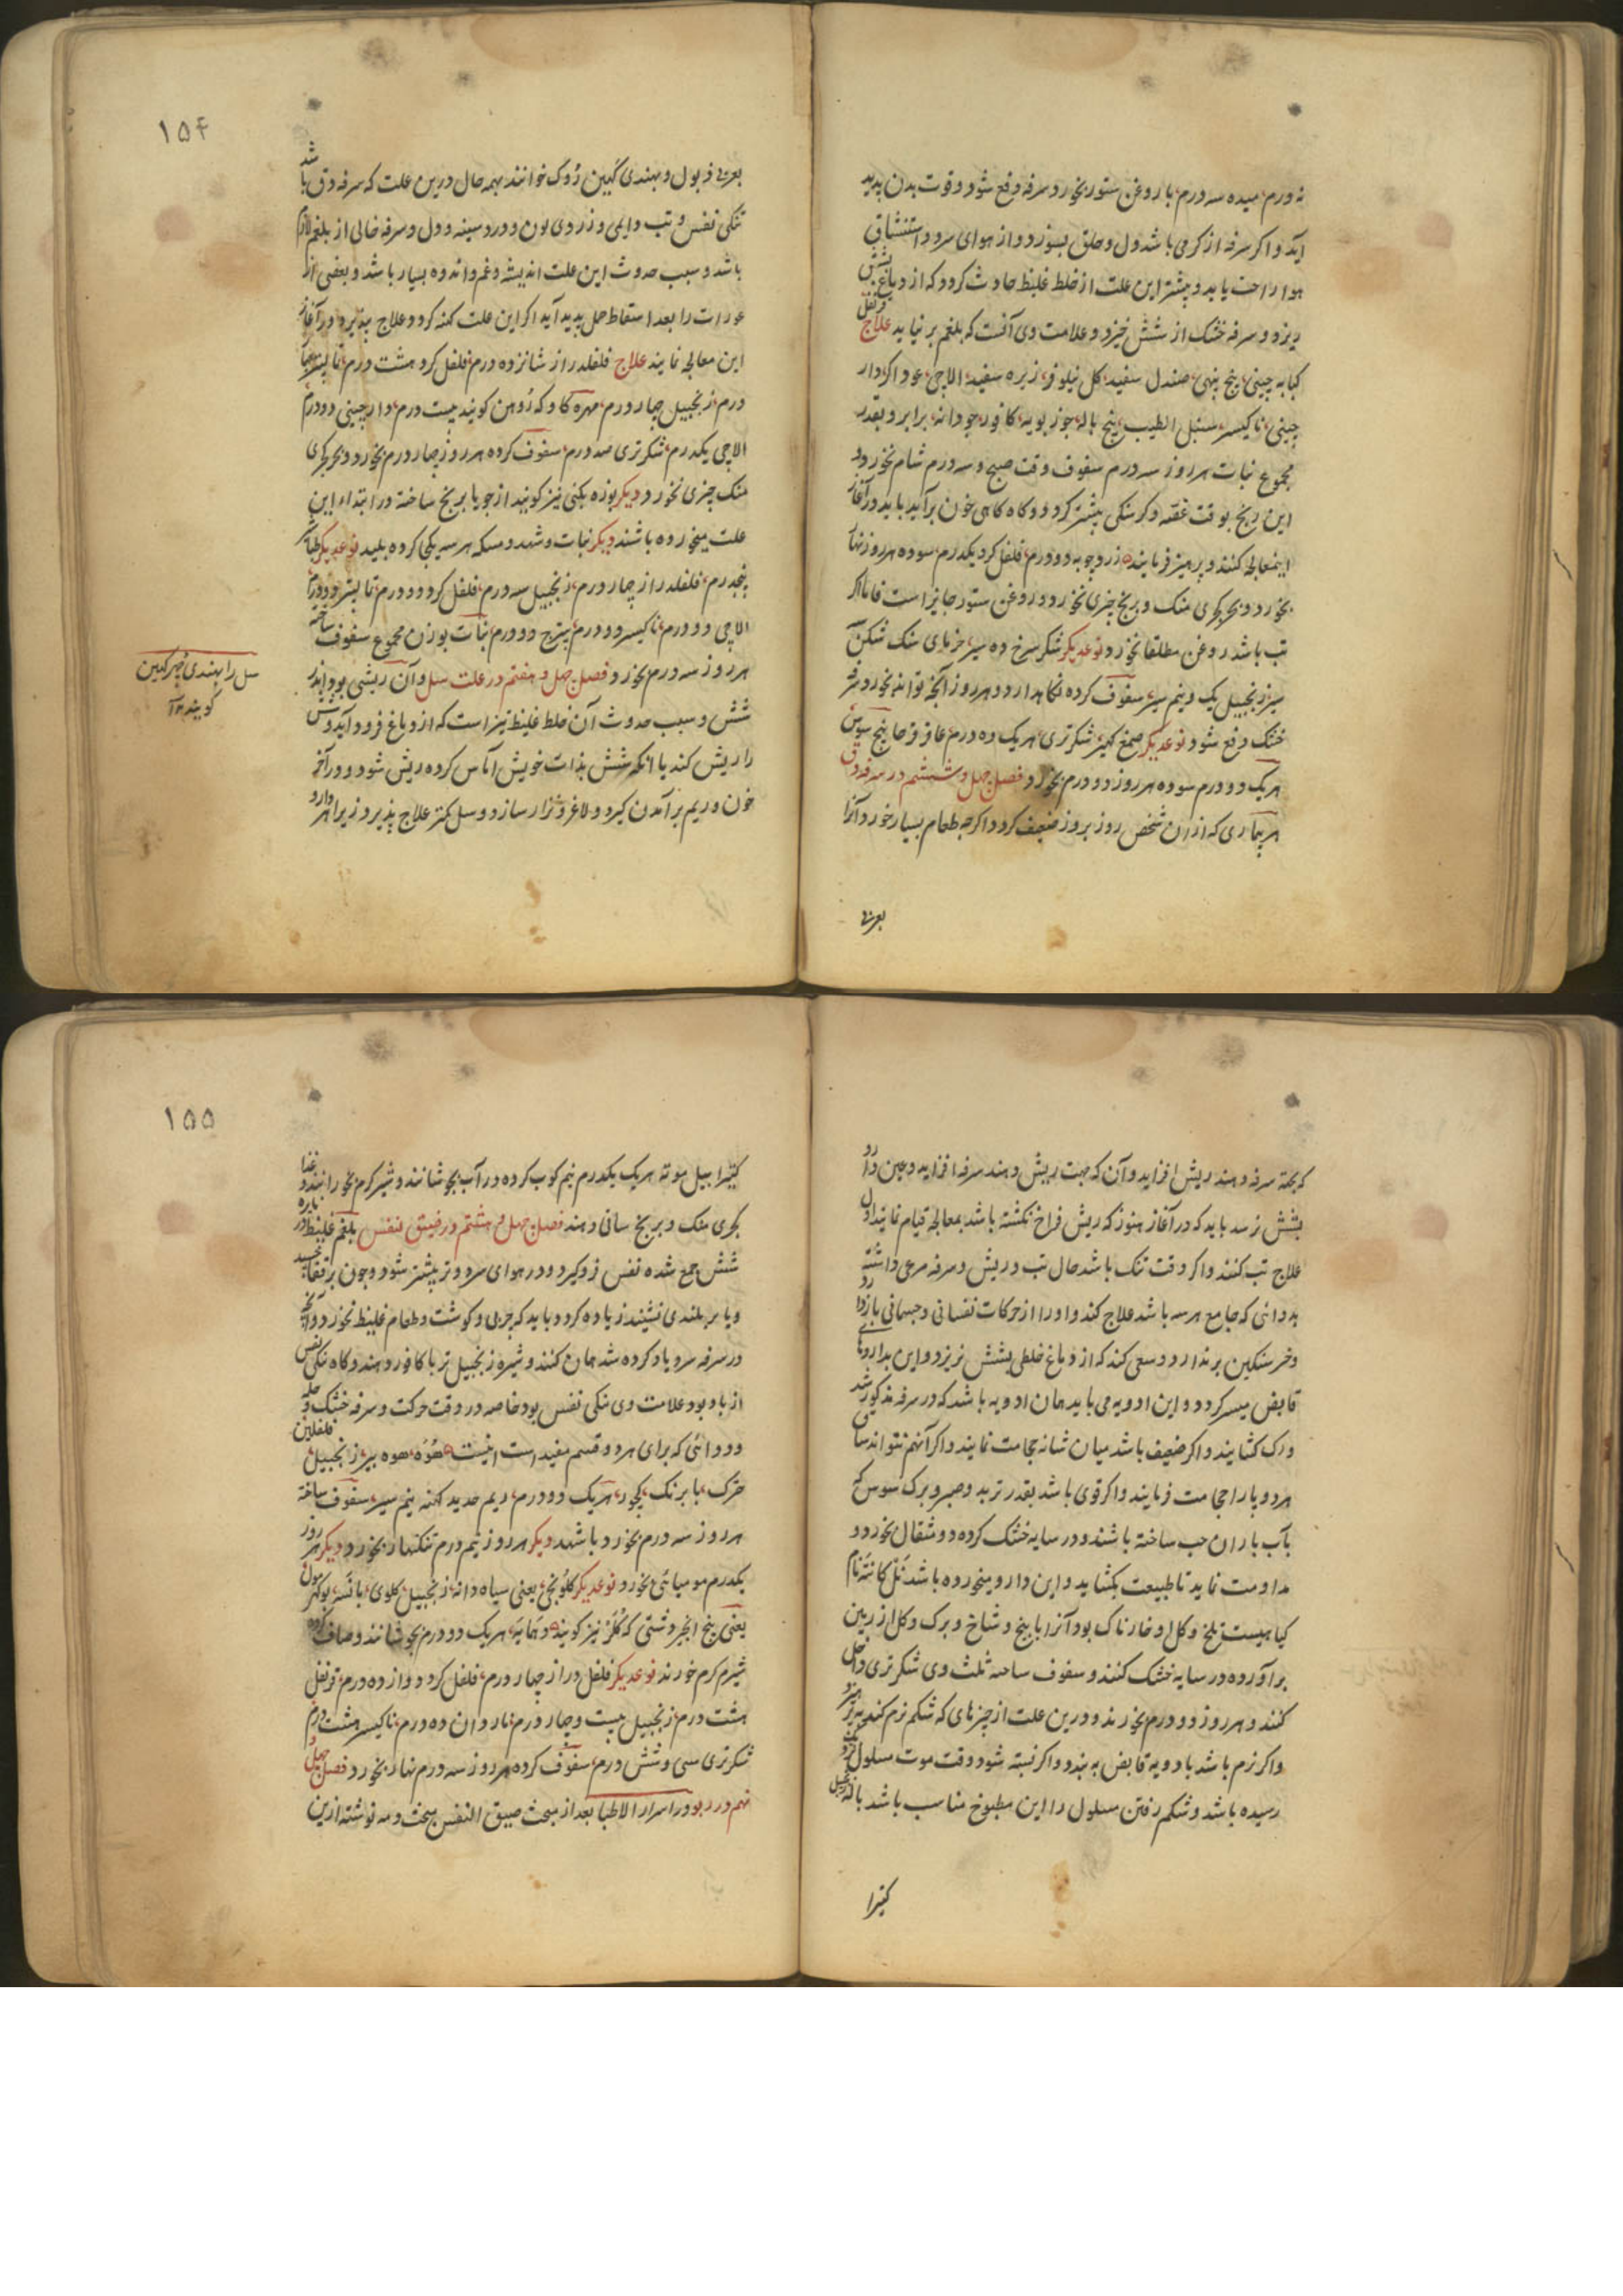 نه ورم، میده سه درم، با روغن ستور بخورد سرفه دفع شود و قوت بدن پدید
آید و اگر سرفه از گرمی باشد دل و حلق بسوزد و از هوای سرد و استنشاق
هوا راحت یابد و بیشتر این علت از خلط غلیظ حادث گردد که از دماغ بشش
ریزد و سرفه خشک از شش خیزد و علامت وی آنست که بلغم بر نیاید علاج قرنفل
کبابه چینی، بیخ پنهی، صندل سفید، گل نیلوفر، زیره سفید، الاچی، عود، اگر، دار
چینی، ناکیسر، سنبل الطیب، بیخ باله، جوز بویه، کافور، جودانه، برابر و بقدر
مجموع نبات هر روز سه درم سفوف وقت صبح و سه درم شام بخورد و
این رنج بوقت غصه و گرسنگی بیشتر گردد و گاه گاهی خون برآید باید در آغاز
اینمعالجه کنند و پرهیز فرمایند زردچوبه دو درم، فلفل گرد یکدرم، سوده هر روز نهار
بخورد و بجز کجری منگ و برنج چیزی نخورد و روغن ستور جایز است فاما اگر
تب باشد روغن مطلقا نخورد نوعدیگر شکر سرخ ده سیر، خرمای سنگ شکن
سیر، زنجبیل یک و نیم سیر، سفوف کرده نگاهدارد و هر روز آنچه تواند بخورد سرفه
خشک دفع شود نوعدیگر صمغ کهیر، شکرتری، هر یک ده درم، عاقرقرحا، بیخ سوس
هر یک دو درم سوده هر روز دو درم بخورد فصل چهل و ششم در سرفه دق
هر بیماری که از آن شخص روز بروز ضعیف گردد اگرچه طعام بسیار خورد آنرا
بعربی
۱۵۴
بعربی ذبول و بهندی کهین روک خوانند بهمه حال درین علت که سرفه دق باشد
تنگی نفس و تب دایمی و زردی لون و درد سینه و دل و سرفه خالی از بلغم لازم
باشد و سبب حدوث این علت اندیشه و غم و اندوه بسیار باشد و بعضی از
عورات را بعد اسقاط حمل پدید آید اگر این علت کهنه گردد علاج نپذیرد و در آغاز
این معالجه نمایند علاج فلفلدراز شانزده درم، فلفل گرد هشت درم، تالیستر چهار
درم، زنجبیل چهار درم، مهره کاو که روهن گویند بیست درم، دارچینی دو درم
الاچی یکدرم، شکرتری صد درم، سفوف کرده هر روز چهار درم بخورد و بجز کجری
منگ چیزی نخورد دیگر بوزه بکنی نیز گویند از جو یا برنج ساخته در ابتداء این
علت میخورده باشند دیگر نبات و شهد و مسکه هر سه یکجا کرده بلیسد نوعدیگر طباشیر
پنجدرم، فلفلدراز چهار درم، زنجبیل سه درم، فلفل گرد دو درم، تالیستر دو درم
الاچی دو درم، ناکیسر دو درم، پترج دو درم، نبات بوزن مجموع سفوف ساخته
هر روز سه درم بخورد فصل چهل و هفتم در علت سل و آن ریشی بود اندر
شش و سبب حدوث آن خلط غلیظ تیز است که از دماغ فرود آید و شش
را ریش کند یا آنکه شش بذات خویش آماس کرده ریش شود و در آخر
خون و ریم برآمدن گیرد و لاغر و نزار سازد و سل کمتر علاج پذیرد زیرا هر دارو
سل را بهندی جهر کهین
گویند
که بجهة سرفه دهند ریش افزاید و آن که جهت ریش دهند سرفه افزاید و عین دارو
بشش نرسد باید که در آغاز هنوز که ریش فراخ نگشته باشد بمعالجه قیام نمایند اول
علاج تب کنند و اگر وقت تنگ باشد حال تب و ریش و سرفه مرعی داشته
بدوائی که جامع هر سه باشد علاج کند و او را از حرکات نفسانی و جسمانی باز دارد
و خرسنگین بر ندارد و سعی کند که از دماغ خلطی بشش نریزد و این بداروهای
قابض میسر گردد و این ادویه می باید همان ادویه باشد که در سرفه مذکور شد
و رگ گشایند و اگر ضعیف باشد میان شانه حجامت نمایند و اگر آنهم نتواند ساق
هر دو پا را حجامت فرمایند و اگر قوی باشد بقدر تربد و صبر و برگ سوس که
بآب باران حب ساخته باشند و در سایه خشک کرده دو مثقال بخورد و
مداومت نماید تا طبیعت بگشاید و این دارو میخورده باشد نل کانته نام
گیاهیست تلخ و گل او خارناک بود آنرا با بیخ و شاخ و برگ و گل از زمین
برآورده در سایه خشک کنند و سفوف ساخته ثلث وی شکرتری داخل
کنند و هر روز دو درم بخورند و درین علت از چیزهای که شکم نرم کند پرهیزند
و اگر نرم باشد بادویه قابض به بندد و اگر نبسته شود وقت موت مسلول نزدیک
رسیده باشد و شکم رفتن مسلول را این مطبوخ مناسب باشد باله زنجبیل
کتیرا
۱۵۵
کتیرا بیل موته هر یک یکدرم نیم کوب کرده در آب بجوشانند و شیر گرم بخورانند و غذا
کجری منگ و برنج ساتی دهند فصل چهل و هشتم در ضیق نفس بلغم غلیظ در
شش جمع شده نفس زو گیرد و در هوای سرد و تر بیشتر شود و چون بر قفا خسپد
و یا بر بلندی نشیند زیاده گردد باید که چربی و گوشت و طعام غلیظ نخورد و آنچه
در سرفه سرد یاد کرده شد همان کنند و شیره زنجبیل تر با کافور دهند و گاه تنگی نفس
از باد بود علامت وی تنگی نفس بود خاصه در وقت حرکت و سرفه خشک و
دوائی که برای هر دو قسم مفید است اینست هوه، هوه بیر، زنجبیل، فلفلین
چترک، بابرنگ، کچور، هر یک دو درم، ریم حدید کهنه نیم سیر، سفوف ساخته
هر روز سه درم بخورد با شهد دیگر هر روز نیم درم تنکنهار بخورد دیگر هر روز
یکدرم مومیائی بخورد نوعدیگر کلونجی، یعنی سیاه دانه، زنجبیل، کلوی، بانسه، پوکر مول
یعنی بیخ انجیر دشتی که کلر نیز گویند، دهمایه، هر یک دو درم بجوشانند و صاف کرده
شیرگرم خورند نوعدیگر فلفل دراز چهار درم، فلفل گرد دوازده درم، قرنفل
هشت درم، زنجبیل بیست و چهار درم، ناروان ده درم، ناکیسر هشت درم
شکرتری سی و شش درم، سفوف کرده هر روز سه درم نهار بخورد فصل چهل و
نهم در ربو در اسرار الاطبا بعد از مبحث ضیق النفس مبحث دمه نوشته ازین